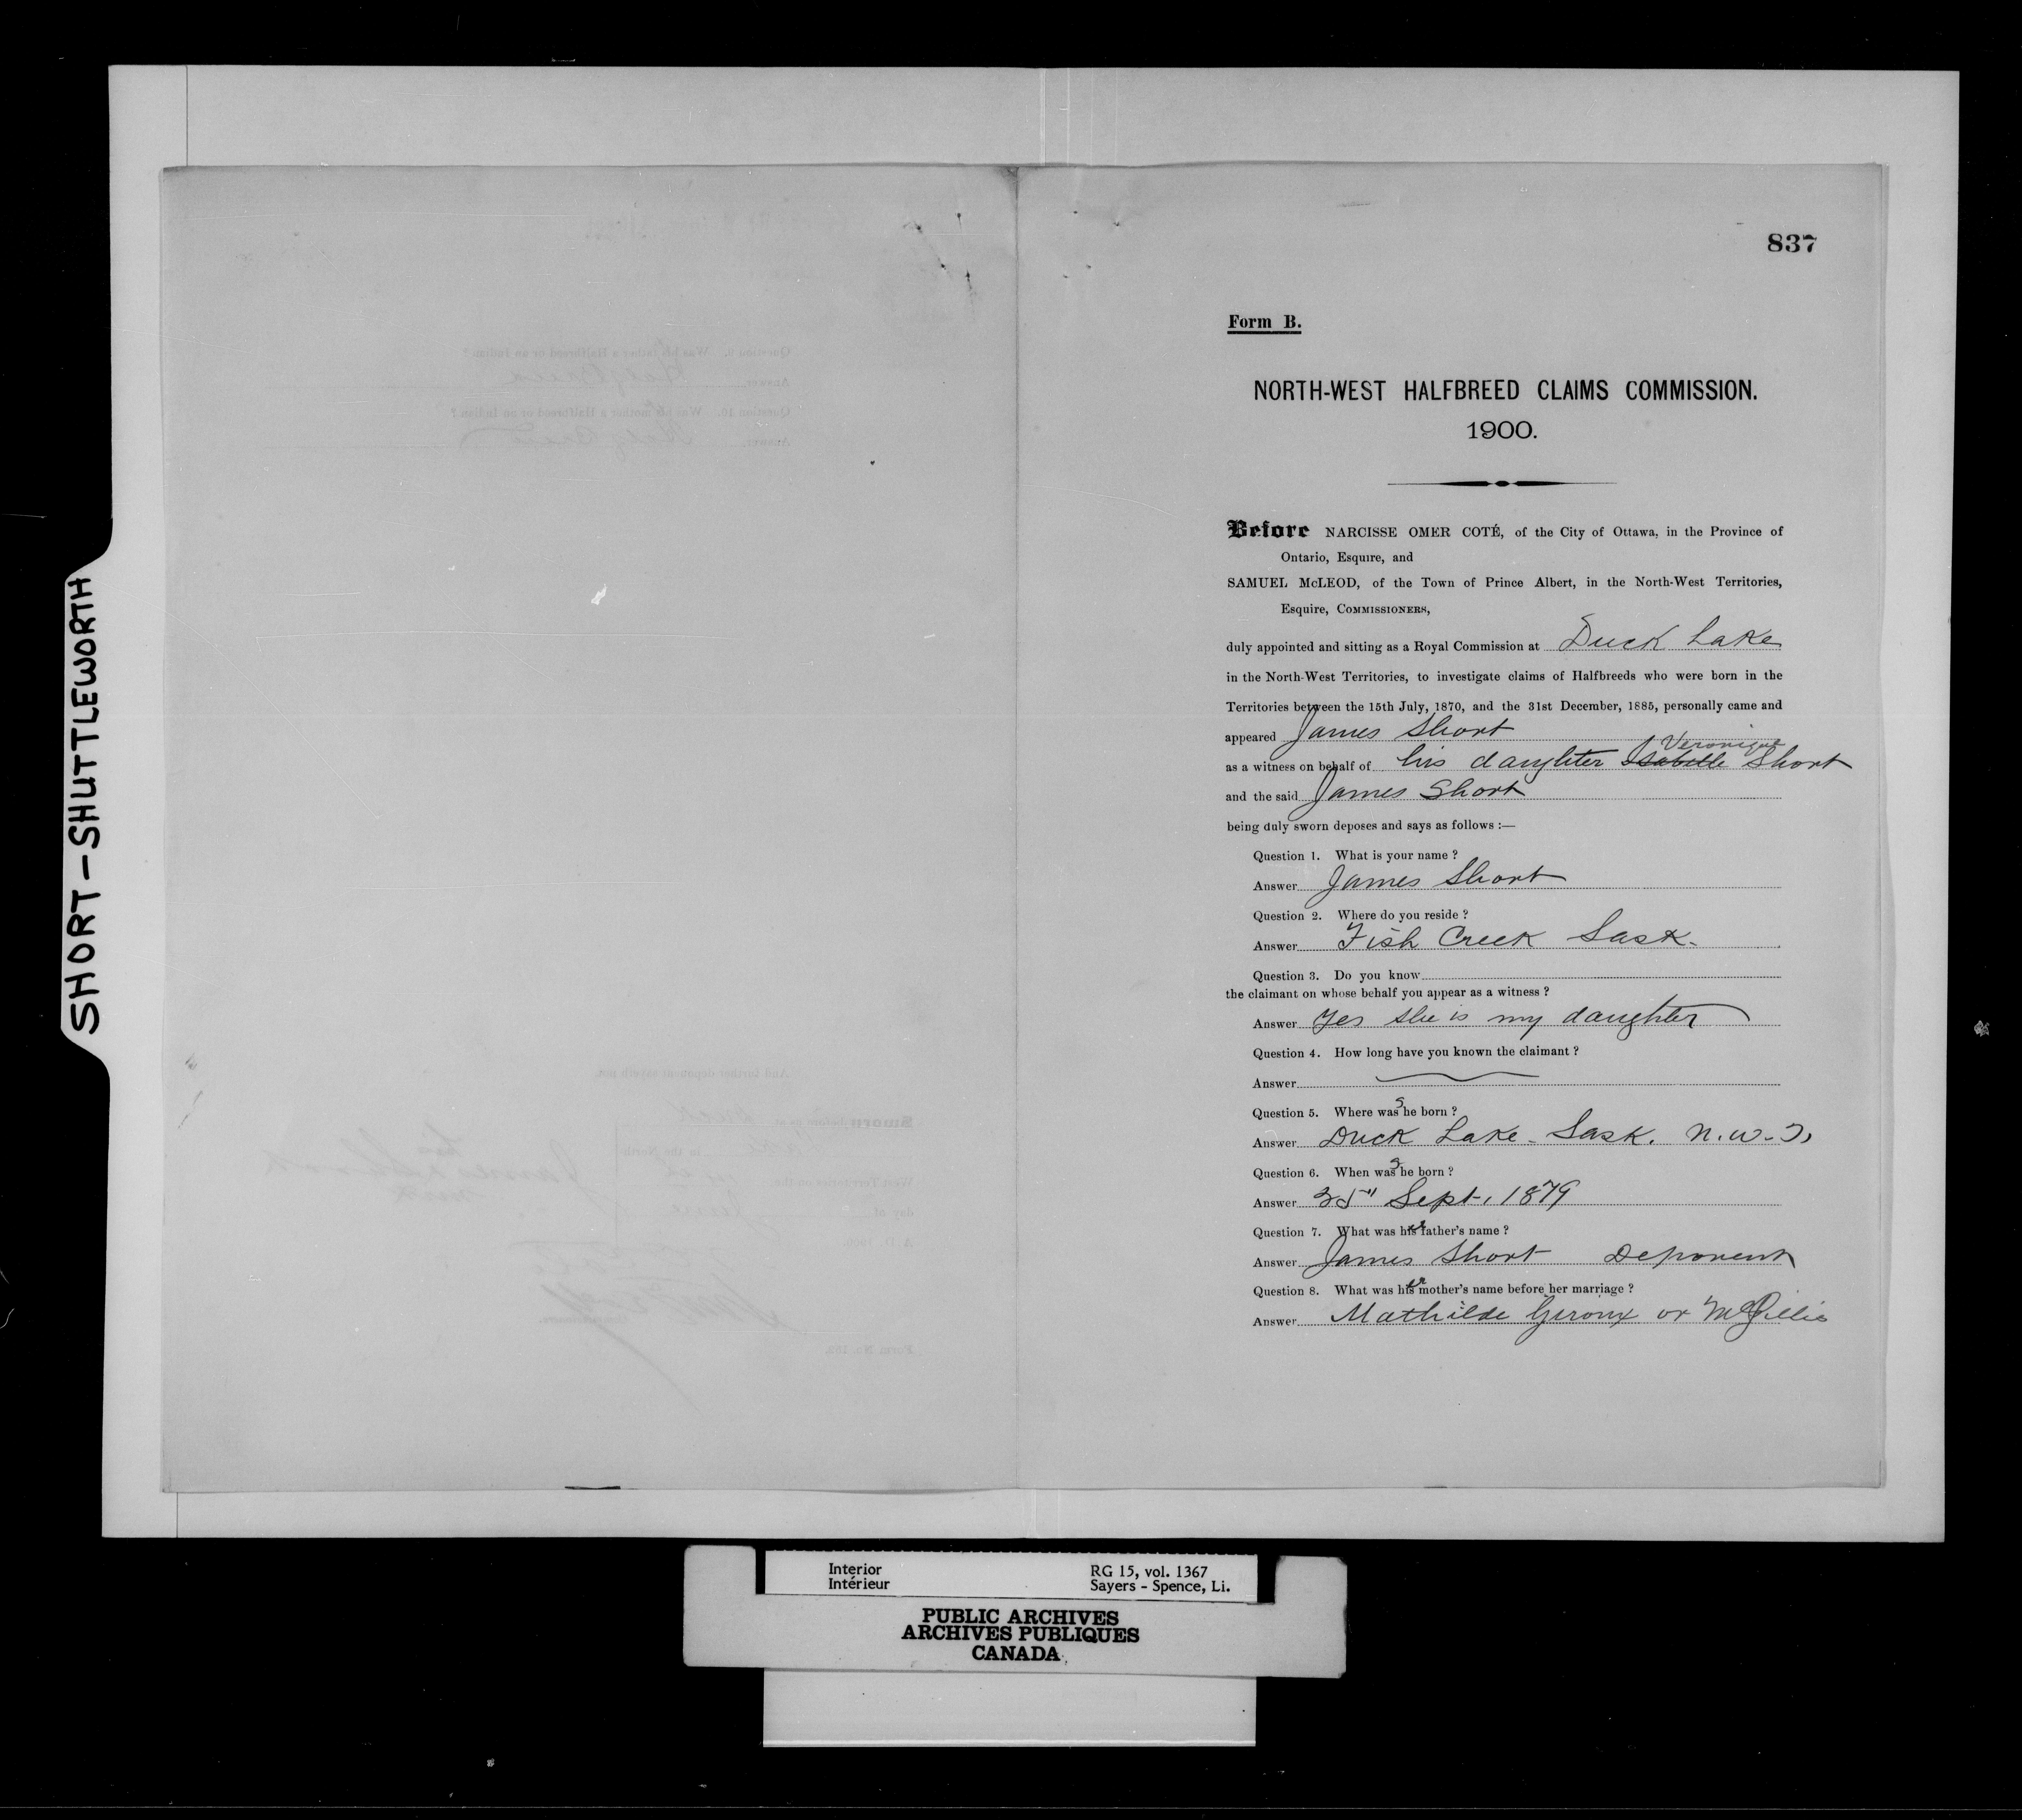 SHORT-SHUTTLEWORTH
837
Form B.
NORTH-WEST HALFBREED CLAIMS COMMISSION.
1900.
Before NARCISSE OMER COTÉ, of the City of Ottawa, in the Province of
Ontario, Esquire, and
SAMUEL McLEOD, of the Town of Prince Albert, in the North-West Territories,
Esquire, COMMISSIONERS,
duly appointed and sitting as a Royal Commission at Duck Lake
in the North-West Territories, to investigate claims of Halfbreeds who were born in the
Territories between the 15th July, 1870, and the 31st December, 1885, personally came and
appeared James Short
Veronique
as a witness on behalf of his daughter Isabelle Short
and the said James Short
being duly sworn deposes and says as follows :—
Question 1. What is your name ?
Answer James Short
Question 2. Where do you reside ?
Answer Fish Creek Sask.
Question 3. Do you know
the claimant on whose behalf you appear as a witness ?
Answer Yes she is my daughter
Question 4. How long have you known the claimant ?
Answer
Question 5. Where was she born ?
Answer Duck Lake - Sask. N.W.T.
Question 6. When was she born ?
Answer Sept. 1879
Question 7. What was her father's name ?
Answer James Short Deponent
Question 8. What was her mother's name before her marriage ?
Answer Mathilde Giroux or McGillis
Interior
Intérieur
RG 15, vol. 1367
Sayers - Spence, Li.
PUBLIC ARCHIVES
ARCHIVES PUBLIQUES
CANADA